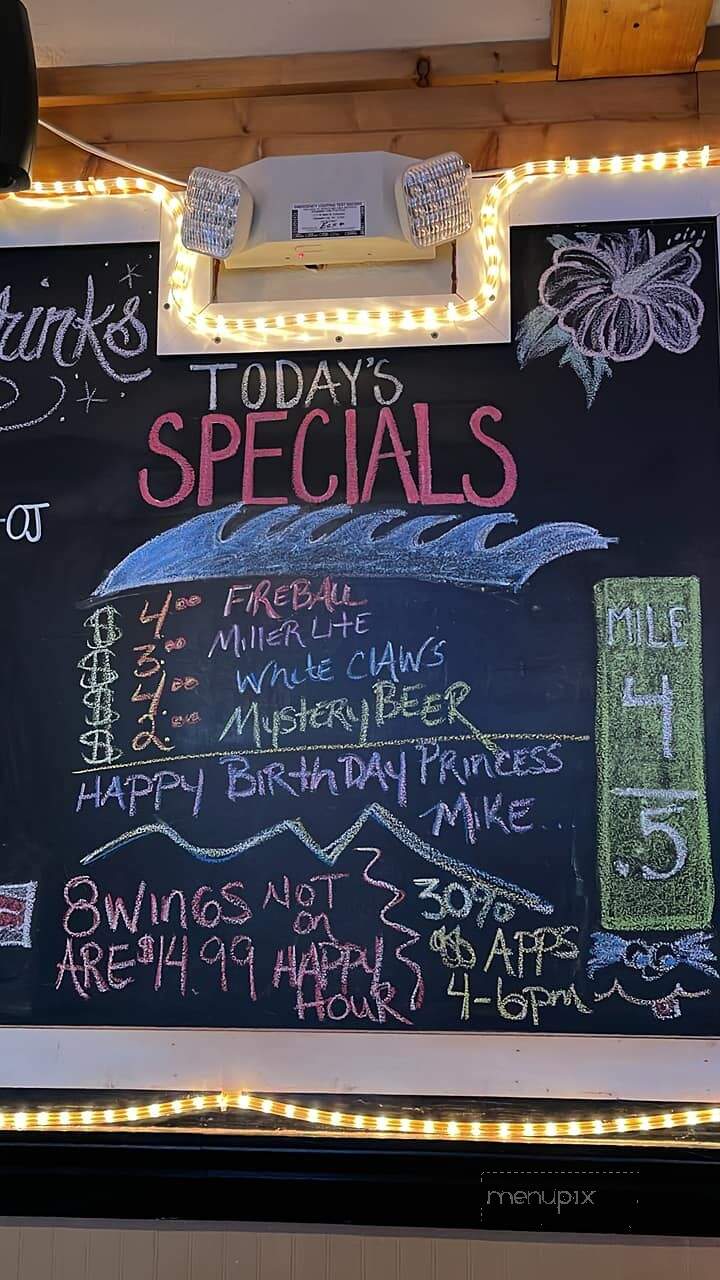 rinks
TODAY'S
SPECIALS
OJ
$ 4.00 FIREBALL
$ 3.00 MILLER LITE
$ 4.00 White CLAWS
$ 2.00 Mystery BEER
HAPPY BirthDAY PRINCESS
MIKE...
MILE
4
.5
8 WINGS NOT
ON
ARE $14.99 HAPPY
HOUR
30%
off APPS
4-6pm
menupix